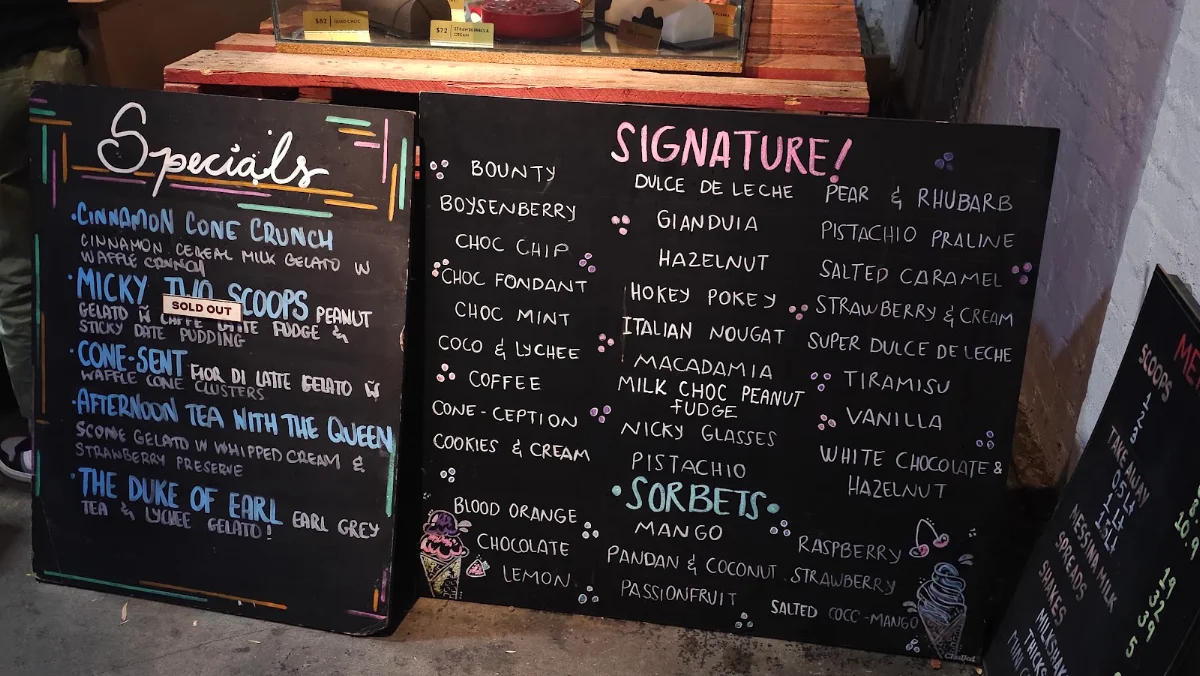 $82 QUAD CHOC
$72 STRAWBERRIES & CREAM
Specials
·CINNAMON CONE CRUNCH
CINNAMON CEREAL MILK GELATO W
WAFFLE CRUNCH
·MICKY TWO SCOOPS PEANUT
SOLD OUT
GELATO W FUDGE &
STICKY DATE PUDDING
·CONE-SENT FIOR DI LATTE GELATO W
WAFFLE CONE CLUSTERS
·AFTERNOON TEA WITH THE QUEEN
SCONE GELATO W WHIPPED CREAM &
STRAWBERRY PRESERVE
·THE DUKE OF EARL EARL GREY
TEA & LYCHEE GELATO!
SIGNATURE!
BOUNTY
BOYSENBERRY
CHOC CHIP
CHOC FONDANT
CHOC MINT
COCO & LYCHEE
COFFEE
CONE-CEPTION
COOKIES & CREAM
DULCE DE LECHE
GIANDUIA
HAZELNUT
HOKEY POKEY
ITALIAN NOUGAT
MACADAMIA
MILK CHOC PEANUT
FUDGE
NICKY GLASSES
PISTACHIO
PEAR & RHUBARB
PISTACHIO PRALINE
SALTED CARAMEL
STRAWBERRY & CREAM
SUPER DULCE DE LECHE
TIRAMISU
VANILLA
WHITE CHOCOLATE &
HAZELNUT
·SORBETS·
BLOOD ORANGE
CHOCOLATE
LEMON
MANGO
PANDAN & COCONUT
PASSIONFRUIT
RASPBERRY
STRAWBERRY
SALTED COCO-MANGO
ME
SCOOPS
1
2
3
TAKE AWAY
0.5 Lt
1 Lt
1.5 Lt
MESSINA MILK
SPREADS
SHAKES
MILKSHAK
THICKS